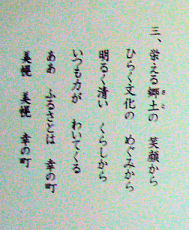 三、栄える郷土の 笑顔から
さと
ひらく文化の めぐみから
明るく清い くらしから
いつも力が わいてくる
ああ ふるさとは 幸の町
美幌 美幌 幸の町